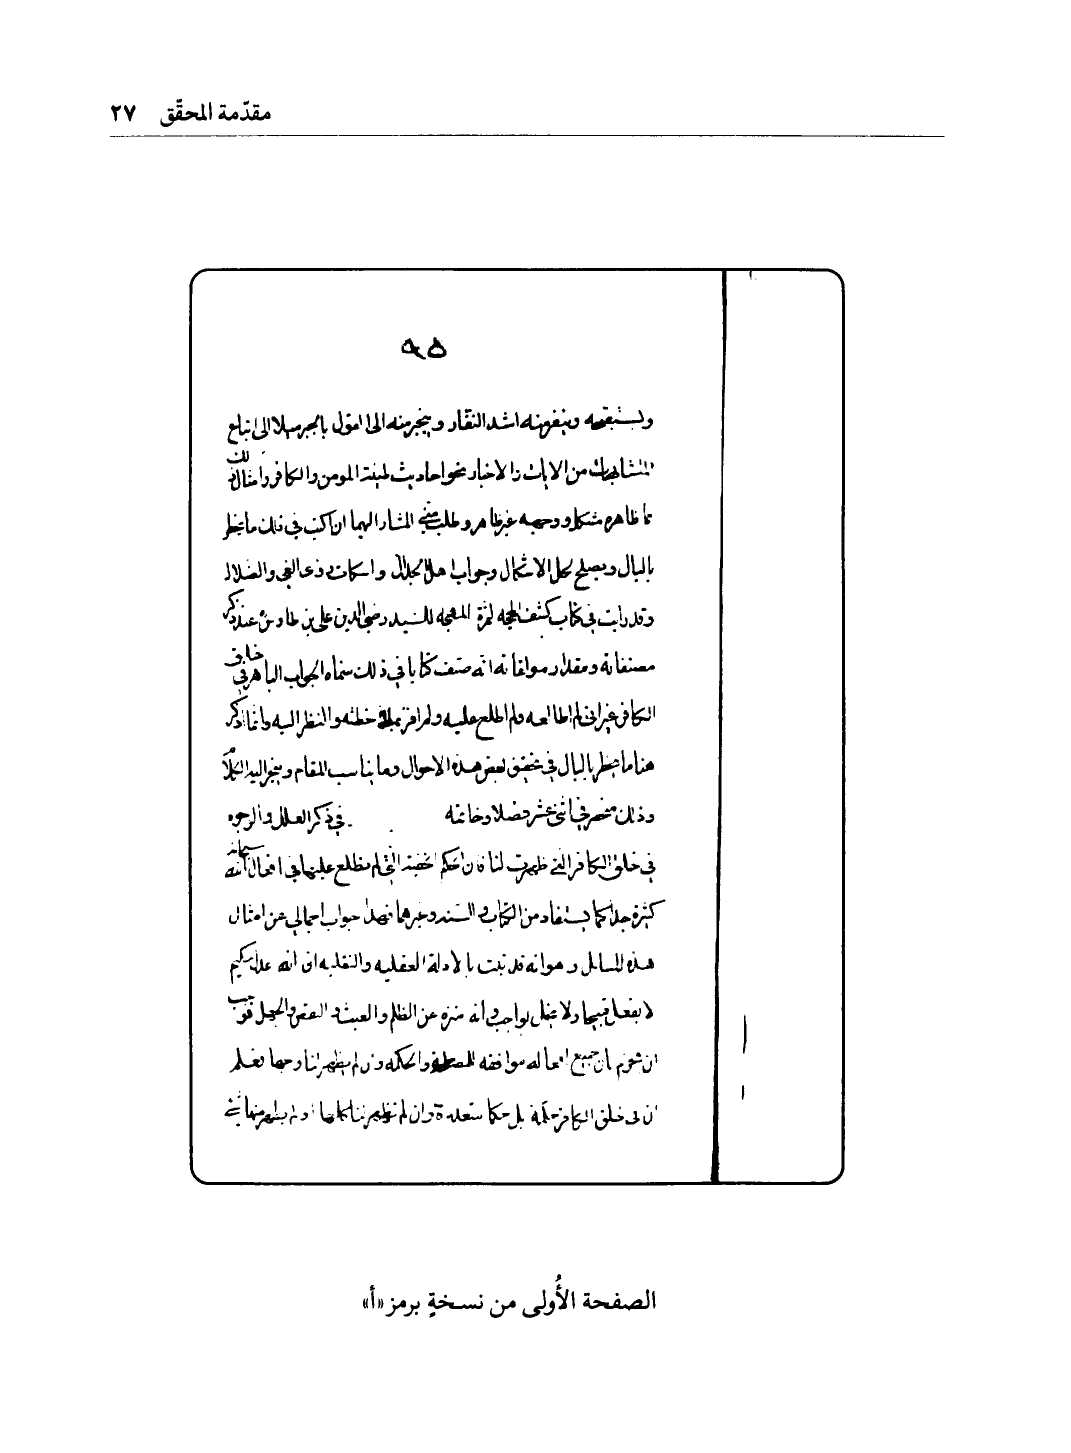 مقدّمة المحقّق ٢٧
٩٥
ويستقبحه وينفر منه اشد النفار وينجر منه الى اتباع
المتشابهات من الايات والاخبار نحو احاديث طينة المومن والكافر وامثال ذلك
مما ظاهره مشكل ووجهه غير ظاهر وطلب مني المشار اليهما ان اكتب في ذلك ما يخطر
بالبال ويصلح لحل الاشكال وجوابا هل الجلال واسكات ذي الغي والضلال
وقد رايت في كتاب كشف المحجه لثمرة المهجه للسيد رضي الدين علي بن طاوس عند ذكر
مصنفاته ومقدار مولفاته انه صنف كتابا في ذلك سماه الجواب الباهر في خلق
الكافر غير اني لم اطالعه ولم اطلع عليه ولم افز بملاحظته والنظر اليه وانما اذكر
هنا ما يخطر بالبال في تحقيق بعض هذه الاحوال وما يناسب المقام وينجر اليه الكلام
وذلك منحصر في اثني عشر فصلا وخاتمه في ذكر العلل والوجوه
في خلق الكافر التي ظهرت لنا فان الحكم الخفية التي لم نطلع عليها في افعال الله سبحانه
كثيرة جدا كما يستفاد من الكتاب والسنه وغيرهما فهذا جواب اجمالي عن امثال
هذه المسائل وهو انه قد ثبت بالادلة العقليه والنقليه ان الله عدل حكيم
لا يفعل قبيحا ولا يخل بواجب وانه منزه عن الظلم والعبث والنقص والجهل فوجب
ان نجزم بان جميع افعاله موافقه للمصلحة والحكمه وان لم يظهر لنا وجهها فنعلم
ان في خلق الكافر حكمة بل حكما متعددة وان لم تظهر لنا كلها او لم يظهر منها شي
الصفحة الأُولى من نسخةٍ برمز «أ»